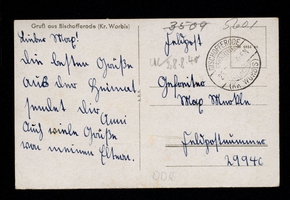 Gruß aus Bischofferode (Kr. Worbis)
3509
Lieber Max!
Die besten Grüße
aus der Heimat
sendet dir
Anni
Auch viele Grüße
von meinen Eltern.
Feldpost
Gefreiter
Max Markle
Feldpostnummer
29946
BISCHOFFERODE
(KR. WORBIS)